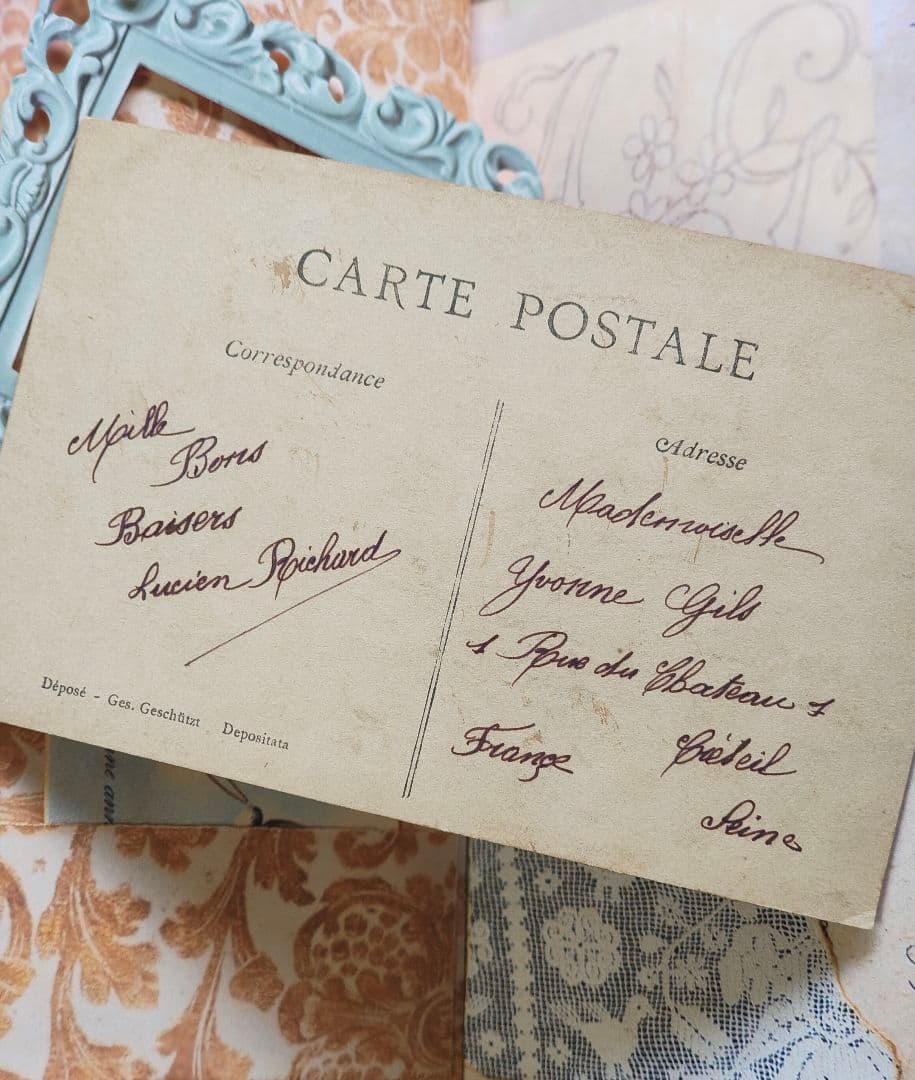 CARTE POSTALE
Correspondance
Mille
Bons
Baisers
Lucien Richard
Déposé - Ges. Geschützt Depositata
Adresse
Mademoiselle
Yvonne Gils
1 Rue du Chateau 1
Créteil
France
Seine